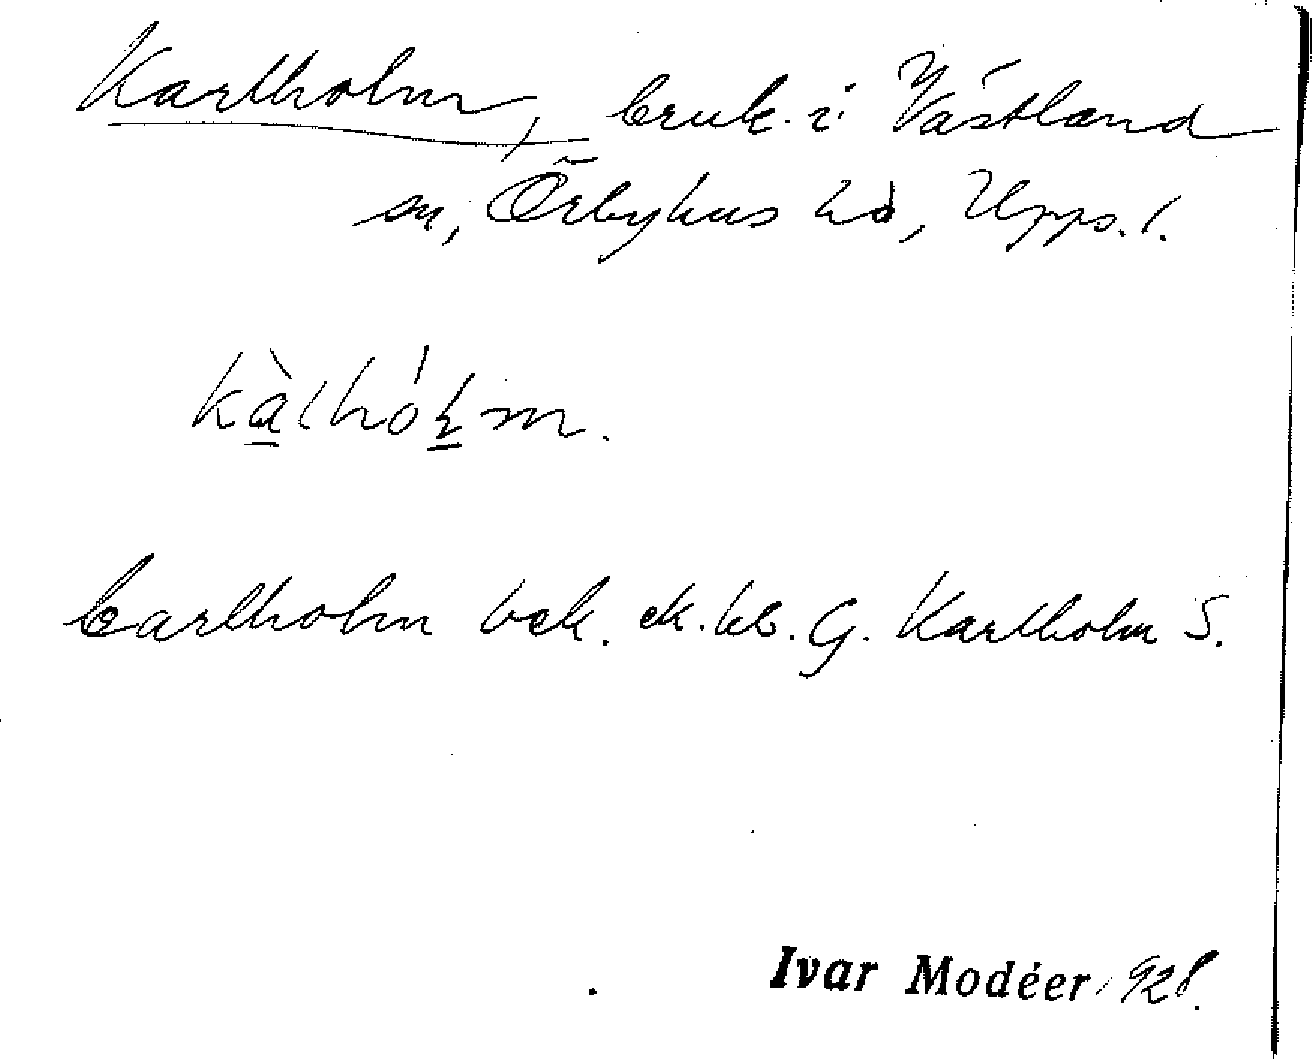 Karlholm, bruk i Västland
sn, Örbyhus hd, Upps. l.
kàlhóɫm.
Carlholm bek. ek. kb. G. Karlholm S.
Ivar Modéer 1928.